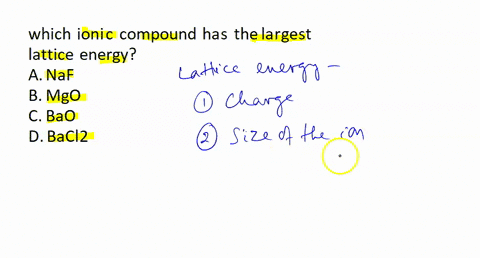 which ionic compound has the largest
lattice energy?
A. NaF
B. MgO
C. BaO
D. BaCl2
Lattice energy –
① Charge
② Size of the ion